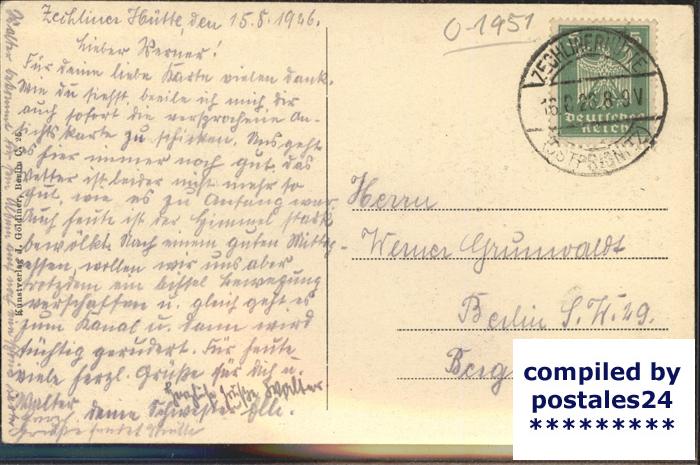 Zechliner Hütte, den 15.8.1926.
Lieber Werner!
Für deine liebe Karte vielen Dank.
Wie du siehst beeile ich mich dir
auch sofort die versprochene An-
sichtskarte zu schicken. Uns geht
es hier immer noch gut, das
Wetter ist leider nicht mehr so
gut, wie es zu Anfang war.
Auch heute ist der Himmel stark
bewölkt. Nach einem guten Mittag-
essen, wollen wir uns aber
trotzdem ein bissel Bewegung
verschaffen u. gleich geht es
zum Kanal u. dann wird
tüchtig gerudert. Für heute
viele herzl. Grüße für dich u.
Walter deine Schwester Elle.
Herzliche Grüße Walter
Grüße sendet
Walter bekommt
Kunstverlag J. Goldiner, Berlin C. 25.
O-1951
ZECHLINERHÜTTE
16.8.26.8-9V
(OSTPRIGNITZ)
5
Deutsches
Reich
Herrn
Werner Grunwaldt
Berlin S.W. 29.
Berg
compiled by
postales24
*********